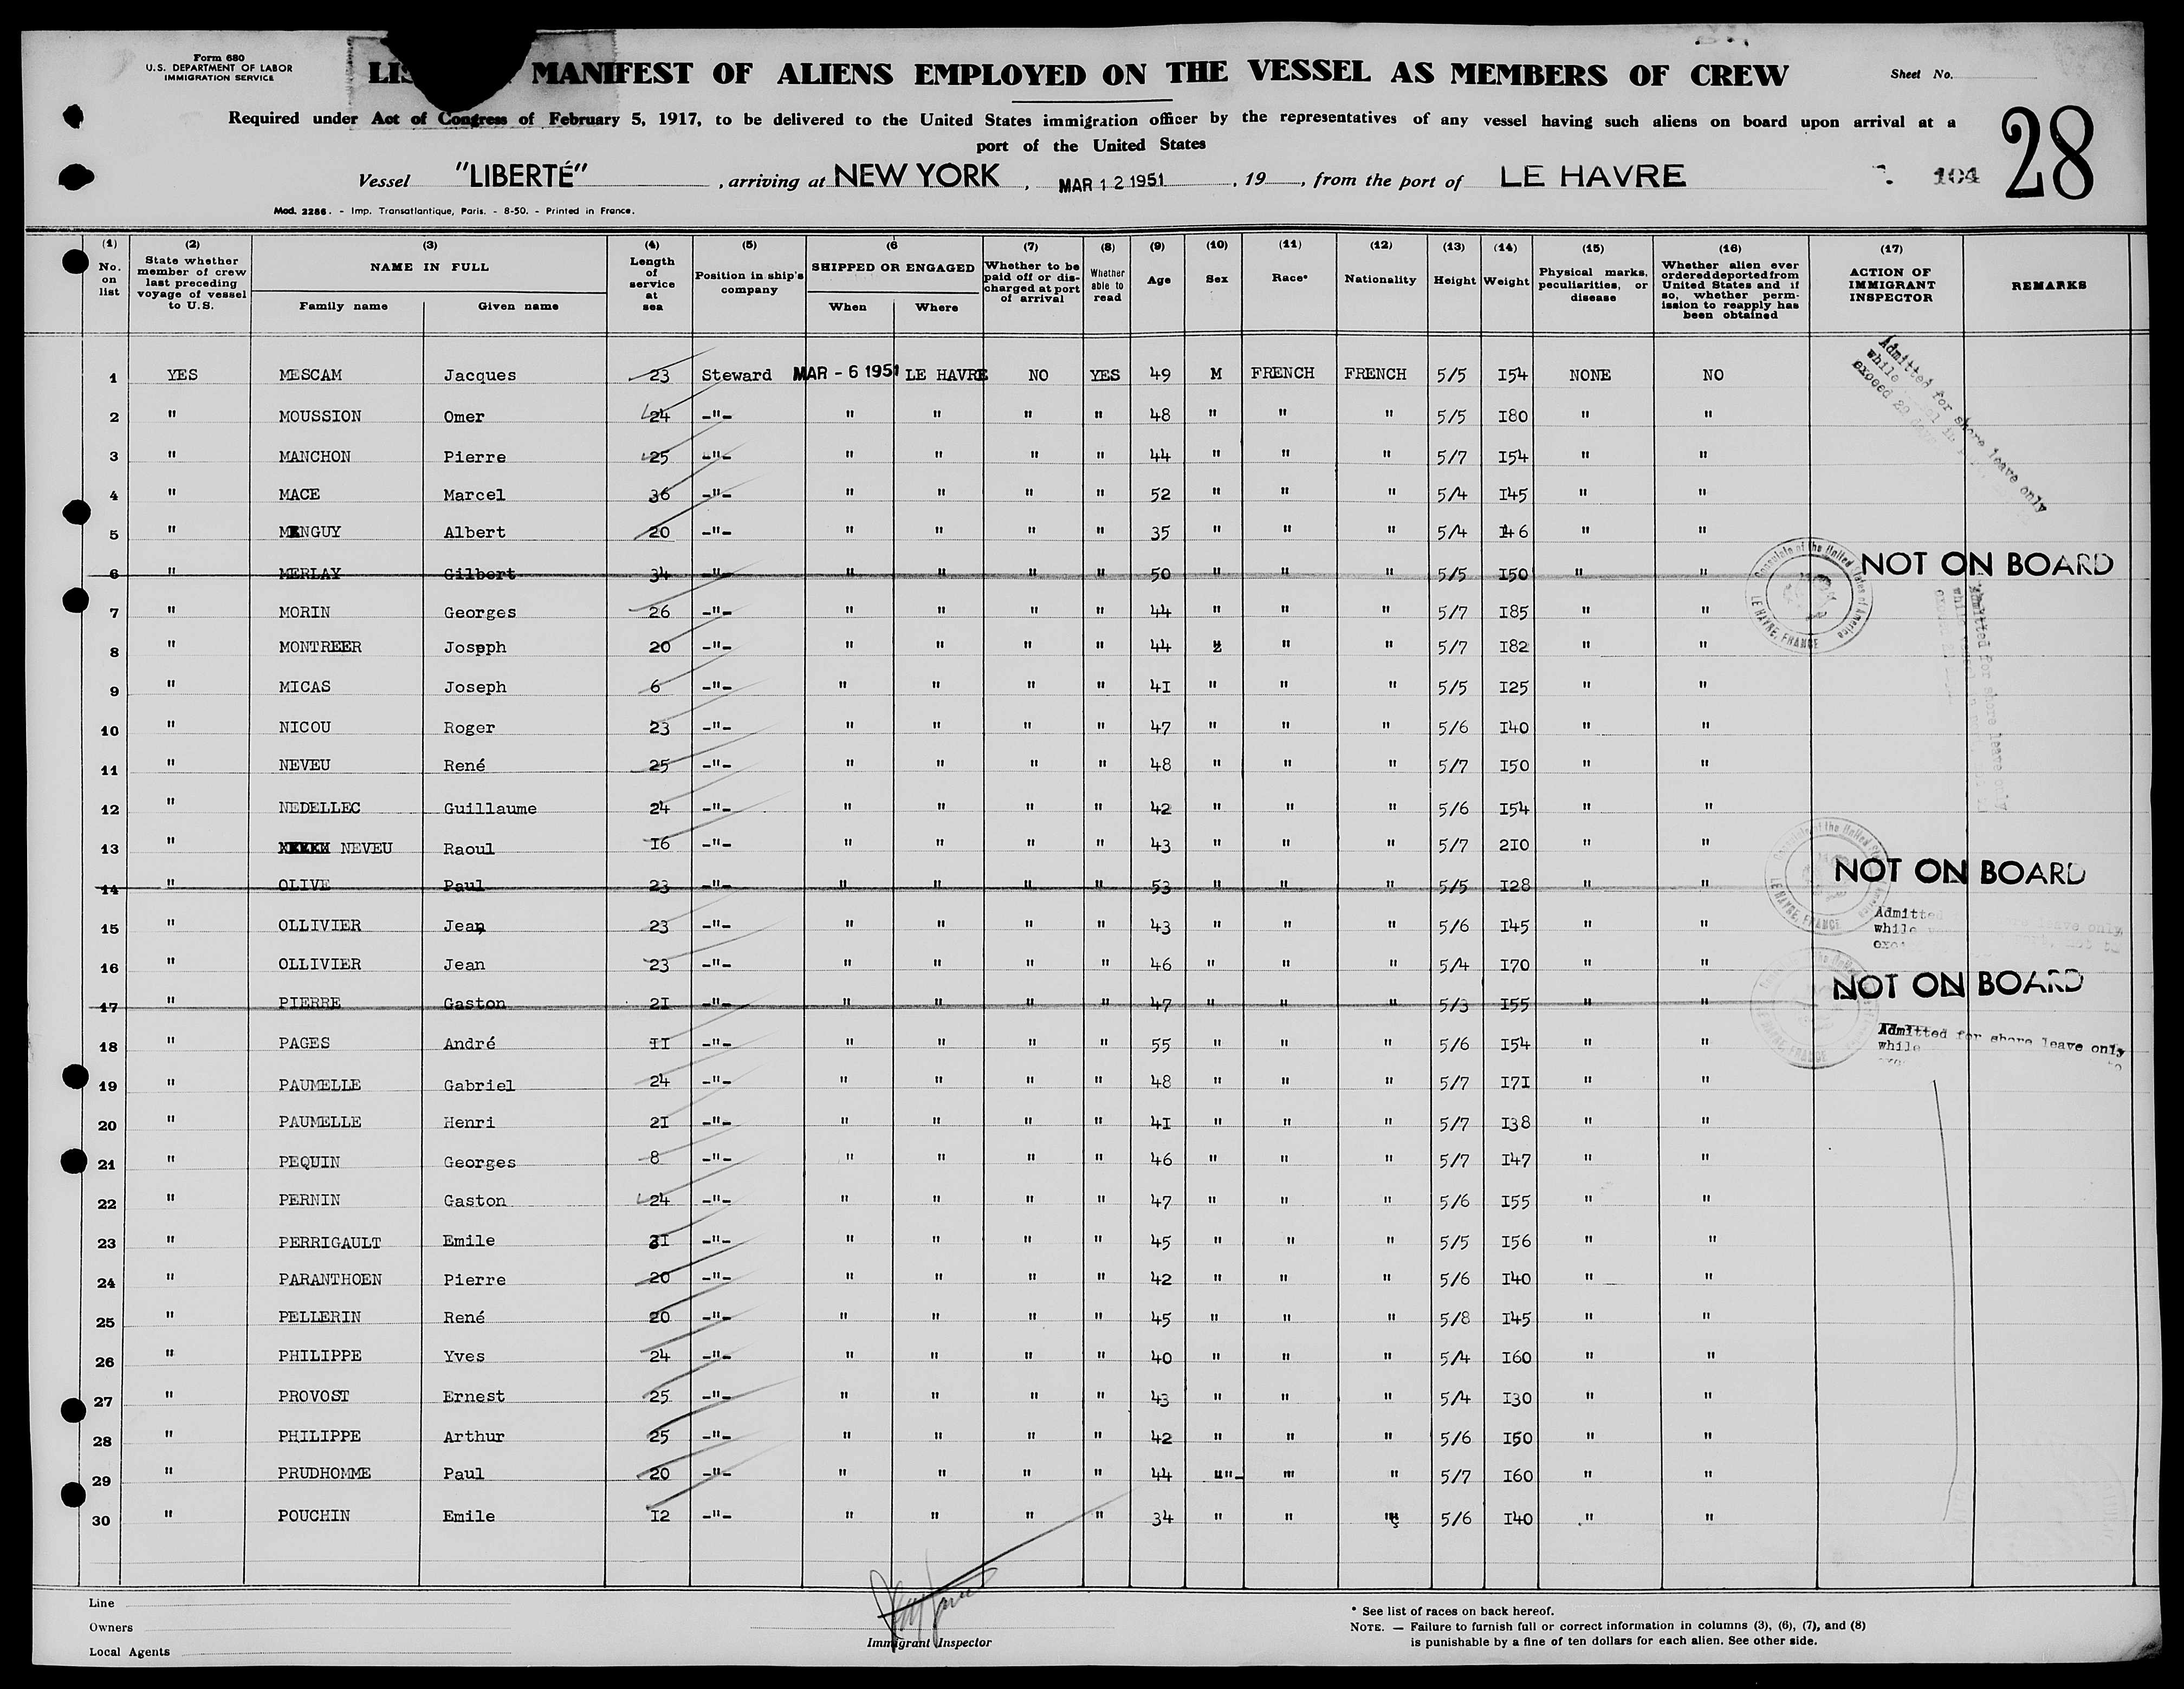 Form 680
U.S. DEPARTMENT OF LABOR
IMMIGRATION SERVICE
LIS MANIFEST OF ALIENS EMPLOYED ON THE VESSEL AS MEMBERS OF CREW
Sheet No.
28
Required under Act of Congress of February 5, 1917, to be delivered to the United States immigration officer by the representatives of any vessel having such aliens on board upon arrival at a
port of the United States
Vessel "LIBERTÉ" , arriving at NEW YORK , MAR 12 1951 , 19 , from the port of LE HAVRE 104
Mod. 2286. - Imp. Transatlantique, Paris. - 8-50. - Printed in France.
(1) No. on list
(2) State whether member of crew last preceding voyage of vessel to U.S.
(3) NAME IN FULL Family name Given name
(4) Length of service at sea
(5) Position in ship's company
(6 SHIPPED OR ENGAGED When Where
(7) Whether to be paid off or discharged at port of arrival
(8) Whether able to read
(9) Age
(10) Sex
(11) Race*
(12) Nationality
(13) Height
(14) Weight
(15) Physical marks, peculiarities, or disease
(16) Whether alien ever ordered deported from United States and if so, whether permission to reapply has been obtained
(17) ACTION OF IMMIGRANT INSPECTOR
REMARKS
1 YES MESCAM Jacques 23 Steward MAR - 6 1951 LE HAVRE NO YES 49 M FRENCH FRENCH 5/5 I54 NONE NO
Admitted for shore leave only
while
exceed 29 days
2 " MOUSSION Omer 24 -"- " " " " 48 " " " 5/5 I80 " "
3 " MANCHON Pierre 25 -"- " " " " 44 " " " 5/7 I54 " "
4 " MACE Marcel 36 -"- " " " " 52 " " " 5/4 I45 " "
5 " MENGUY Albert 20 -"- " " " " 35 " " " 5/4 I46 " "
6 " MERLAY Gilbert 34 -"- " " " " 50 " " " 5/5 I50 " " NOT ON BOARD
Consulate of the United States of America
LE HAVRE, FRANCE
7 " MORIN Georges 26 " " " " 44 " " " 5/7 I85 " "
Admitted for shore leave only
8 " MONTREER Josph 20 -"- " " " " 44 " " " 5/7 I82 " "
9 " MICAS Joseph 6 -"- " " " " 4I " " " 5/5 I25 " "
10 " NICOU Roger 23 -"- " " " " 47 " " " 5/6 I40 " "
11 " NEVEU René 25 -"- " " " " 48 " " " 5/7 I50 " "
12 " NEDELLEC Guillaume 24 -"- " " " " 42 " " " 5/6 I54 " "
13 " NEVEU Raoul I6 -"- " " " " 43 " " " 5/7 2I0 " "
14 " OLIVE Paul 23 -"- " " " " 53 " " " 5/5 I28 " " NOT ON BOARD
Consulate of the United States of America
LE HAVRE, FRANCE
15 " OLLIVIER Jean 23 -"- " " " " 43 " " " 5/6 I45 " "
Admitted leave only
while
16 " OLLIVIER Jean 23 -"- " " " " 46 " " " 5/4 I70 " "
17 " PIERRE Gaston 2I -"- " " " " 47 " " " 5/3 I55 " " NOT ON BOARD
LE HAVRE, FRANCE
18 " PAGES André II -"- " " " " 55 " " " 5/6 I54 " "
Admitted for shore leave only
while
19 " PAUMELLE Gabriel 24 -"- " " " " 48 " " " 5/7 I7I " "
20 " PAUMELLE Henri 2I -"- " " " " 4I " " " 5/7 I38 " "
21 " PEQUIN Georges 8 -"- " " " " 46 " " " 5/7 I47 " "
22 " PERNIN Gaston 24 -"- " " " " 47 " " " 5/6 I55 " "
23 " PERRIGAULT Emile 3I -"- " " " " 45 " " " 5/5 I56 " "
24 " PARANTHOEN Pierre 20 -"- " " " " 42 " " " 5/6 I40 " "
25 " PELLERIN René 20 -"- " " " " 45 " " " 5/8 I45 " "
26 " PHILIPPE Yves 24 -"- " " " " 40 " " " 5/4 I60 " "
27 " PROVOST Ernest 25 -"- " " " " 43 " " " 5/4 I30 " "
28 " PHILIPPE Arthur 25 -"- " " " " 42 " " " 5/6 I50 " "
29 " PRUDHOMME Paul 20 -"- " " " " 44 " " " 5/7 I60 " "
30 " POUCHIN Emile I2 -"- " " " " 34 " " " 5/6 I40 " "
Line
Owners
Local Agents
Immigrant Inspector
* See list of races on back hereof.
NOTE. — Failure to furnish full or correct information in columns (3), (6), (7), and (8)
is punishable by a fine of ten dollars for each alien. See other side.